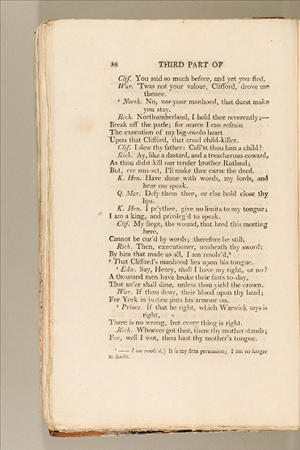 38 THIRD PART OF
Clif. You said so much before, and yet you fled.
War. 'Twas not your valour, Clifford, drove me
thence.
North. No, nor your manhood, that durst make
you stay.
Rich. Northumberland, I hold thee reverently;—
Break off the parle; for scarce I can refrain
The execution of my big-swoln heart
Upon that Clifford, that cruel child-killer.
Clif. I slew thy father: Call'st thou him a child?
Rich. Ay, like a dastard, and a treacherous coward,
As thou didst kill our tender brother Rutland;
But, ere sun-set, I'll make thee curse the deed.
K. Hen. Have done with words, my lords, and
hear me speak.
Q. Mar. Defy them then, or else hold close thy
lips.
K. Hen. I pr'ythee, give no limits to my tongue;
I am a king, and privileg'd to speak.
Clif. My liege, the wound, that bred this meeting
here,
Cannot be cur'd by words; therefore be still.
Rich. Then, executioner, unsheath thy sword:
By him that made us all, I am resolv'd,
That Clifford's manhood lies upon his tongue.
Edw. Say, Henry, shall I have my right, or no?
A thousand men have broke their fasts to-day,
That ne'er shall dine, unless thou yield the crown.
War. If thou deny, their blood upon thy head;
For York in justice puts his armour on.
Prince. If that be right, which Warwick says is
right,
There is no wrong, but every thing is right.
Rich. Whoever got thee, there thy mother stands;
For, well I wot, thou hast thy mother's tongue.
— I am resolv'd,] It is my firm persuasion; I am no longer
in doubt.